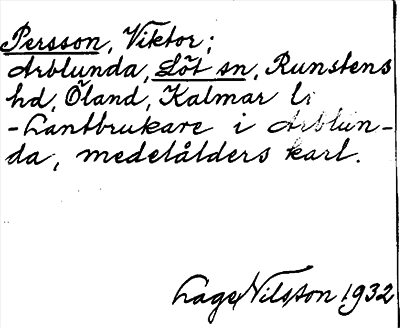 Persson, Viktor;
Arblunda, Löt sn, Runstens
hd, Öland, Kalmar l.
-Lantbrukare i Arblun-
da, medelålders karl.
Lage Nilsson 1932